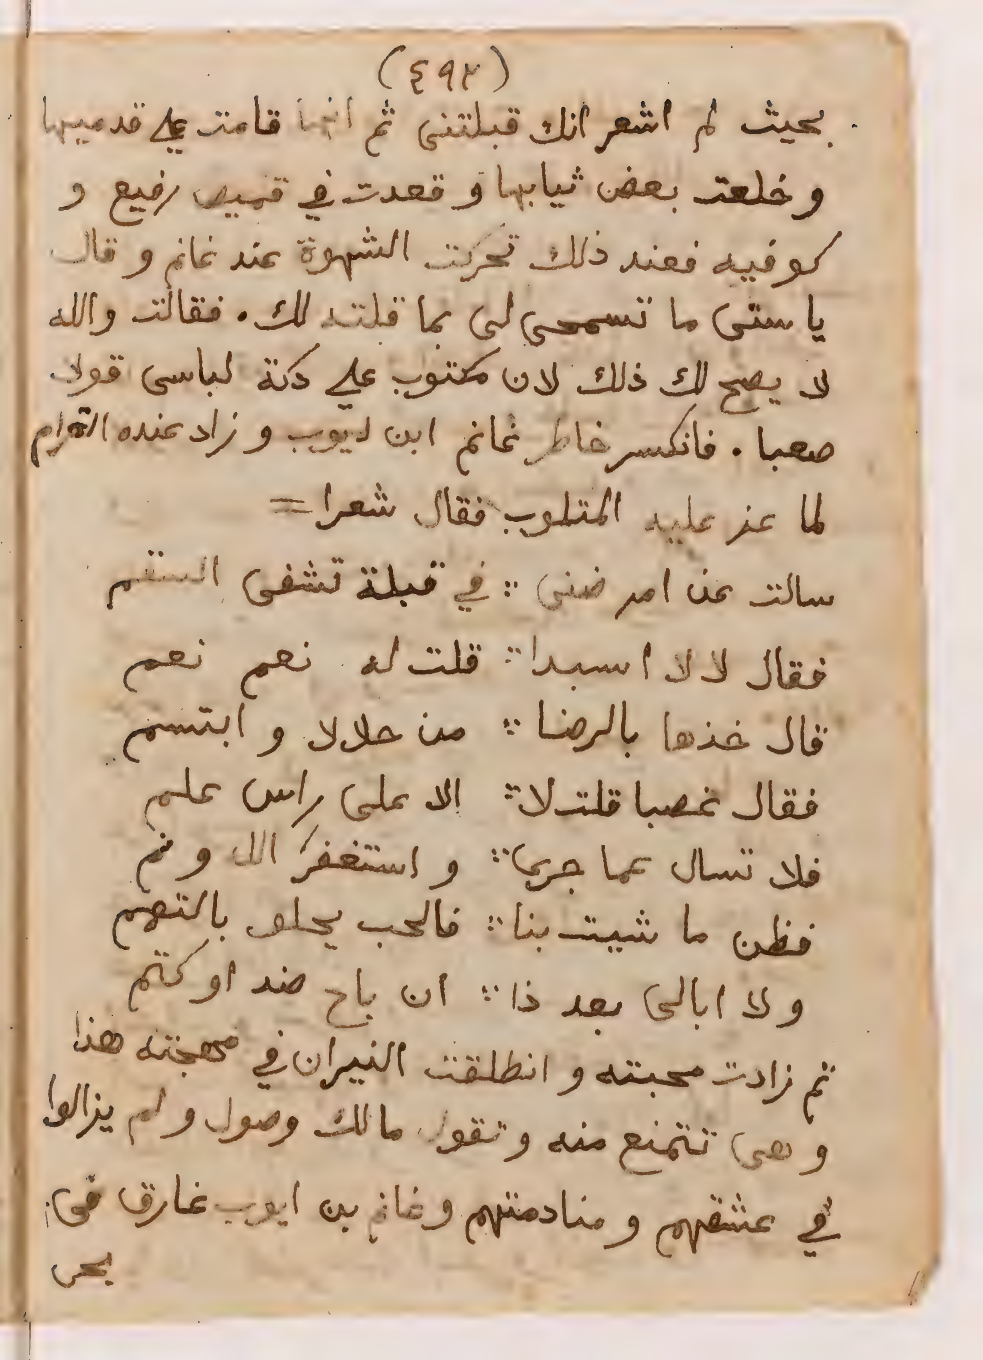 (٤٩٢)
بحيث لم اشعر انك قبلتنى ثم انها قامت على قدميها
و خلعت بعض ثيابها و قعدت في قميص رفيع و
كوفيه فعند ذلك تحركت الشهوة عند غانم و قال
يا ستى ما تسمحى لى بما قلته لك . فقالت والله
لا يصح لك ذلك لان مكتوب على دكة لباسى قولا
صعبا . فانكسر خاطر غانم ابن ايوب و زاد عنده الغرام
لما عز عليه المتلوب فقال شعرا =
سالت عن امر ضنى :: في قبلة تشفى السقم
فقال لا لا اسبدا :: قلت له نعم نعم
قال خذها بالرضا :: من حلالا و ابتسم
فقال غصبا قلت لا :: الا على راس علم
فلا تسال عما جرى :: و استغفر الله و نم
فظن ما شيت بنا :: فالحب يحلو بالتهم
و لا ابالى بعد ذا :: ان باح ضد او كتم
ثم زادت محبته و انطلقت النيران في مهجته هذا
و هى تتمنع منه و تقول مالك وصول و لم يزالوا
في عشقهم و منادمتهم و غانم بن ايوب غارق فى
بحر